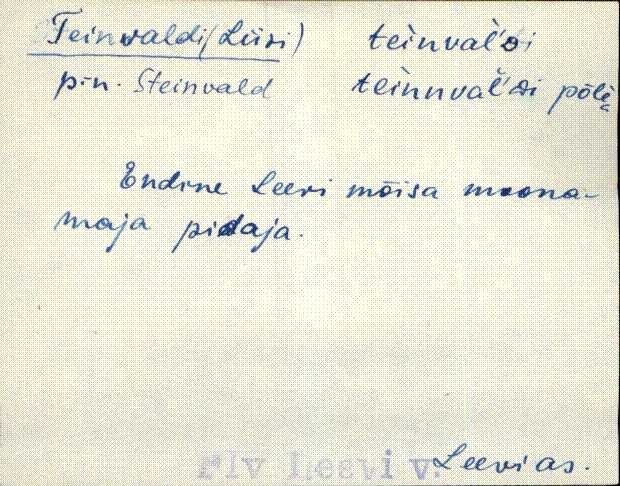 Teinvaldi (Liisi) teinval'di
p.-n. Steinvald teinnval'di põli͔
Endine Leevi mõisa moona-
maja pidaja.
Rlv Leevi v. Leevi as.